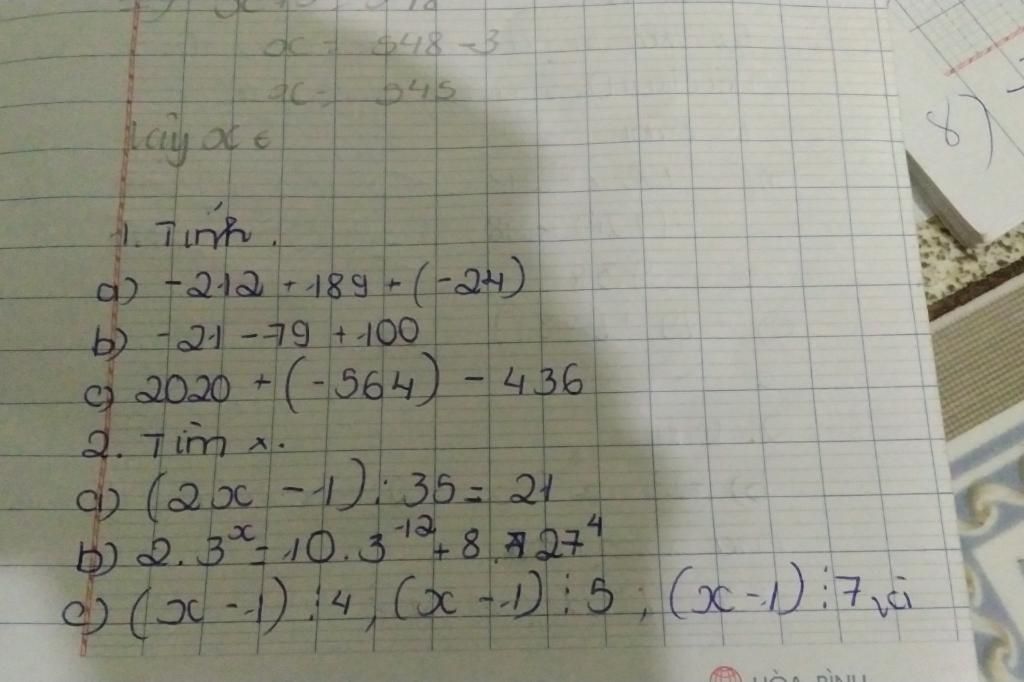 x = 548 - 3
x = 545
Vậy x ∈
8)
1. Tính.
a) -212 + 189 + (-24)
b) -21 - 79 + 100
c) 2020 + (-564) - 436
2. Tìm x.
a) (2x - 1) : 35 = 21
b) 2 . 3^x = 10 . 3^12 + 8 . 27^4
c) (x - 1) ⋮ 4, (x - 1) ⋮ 5 ; (x - 1) ⋮ 7 và
HÒA BÌNH